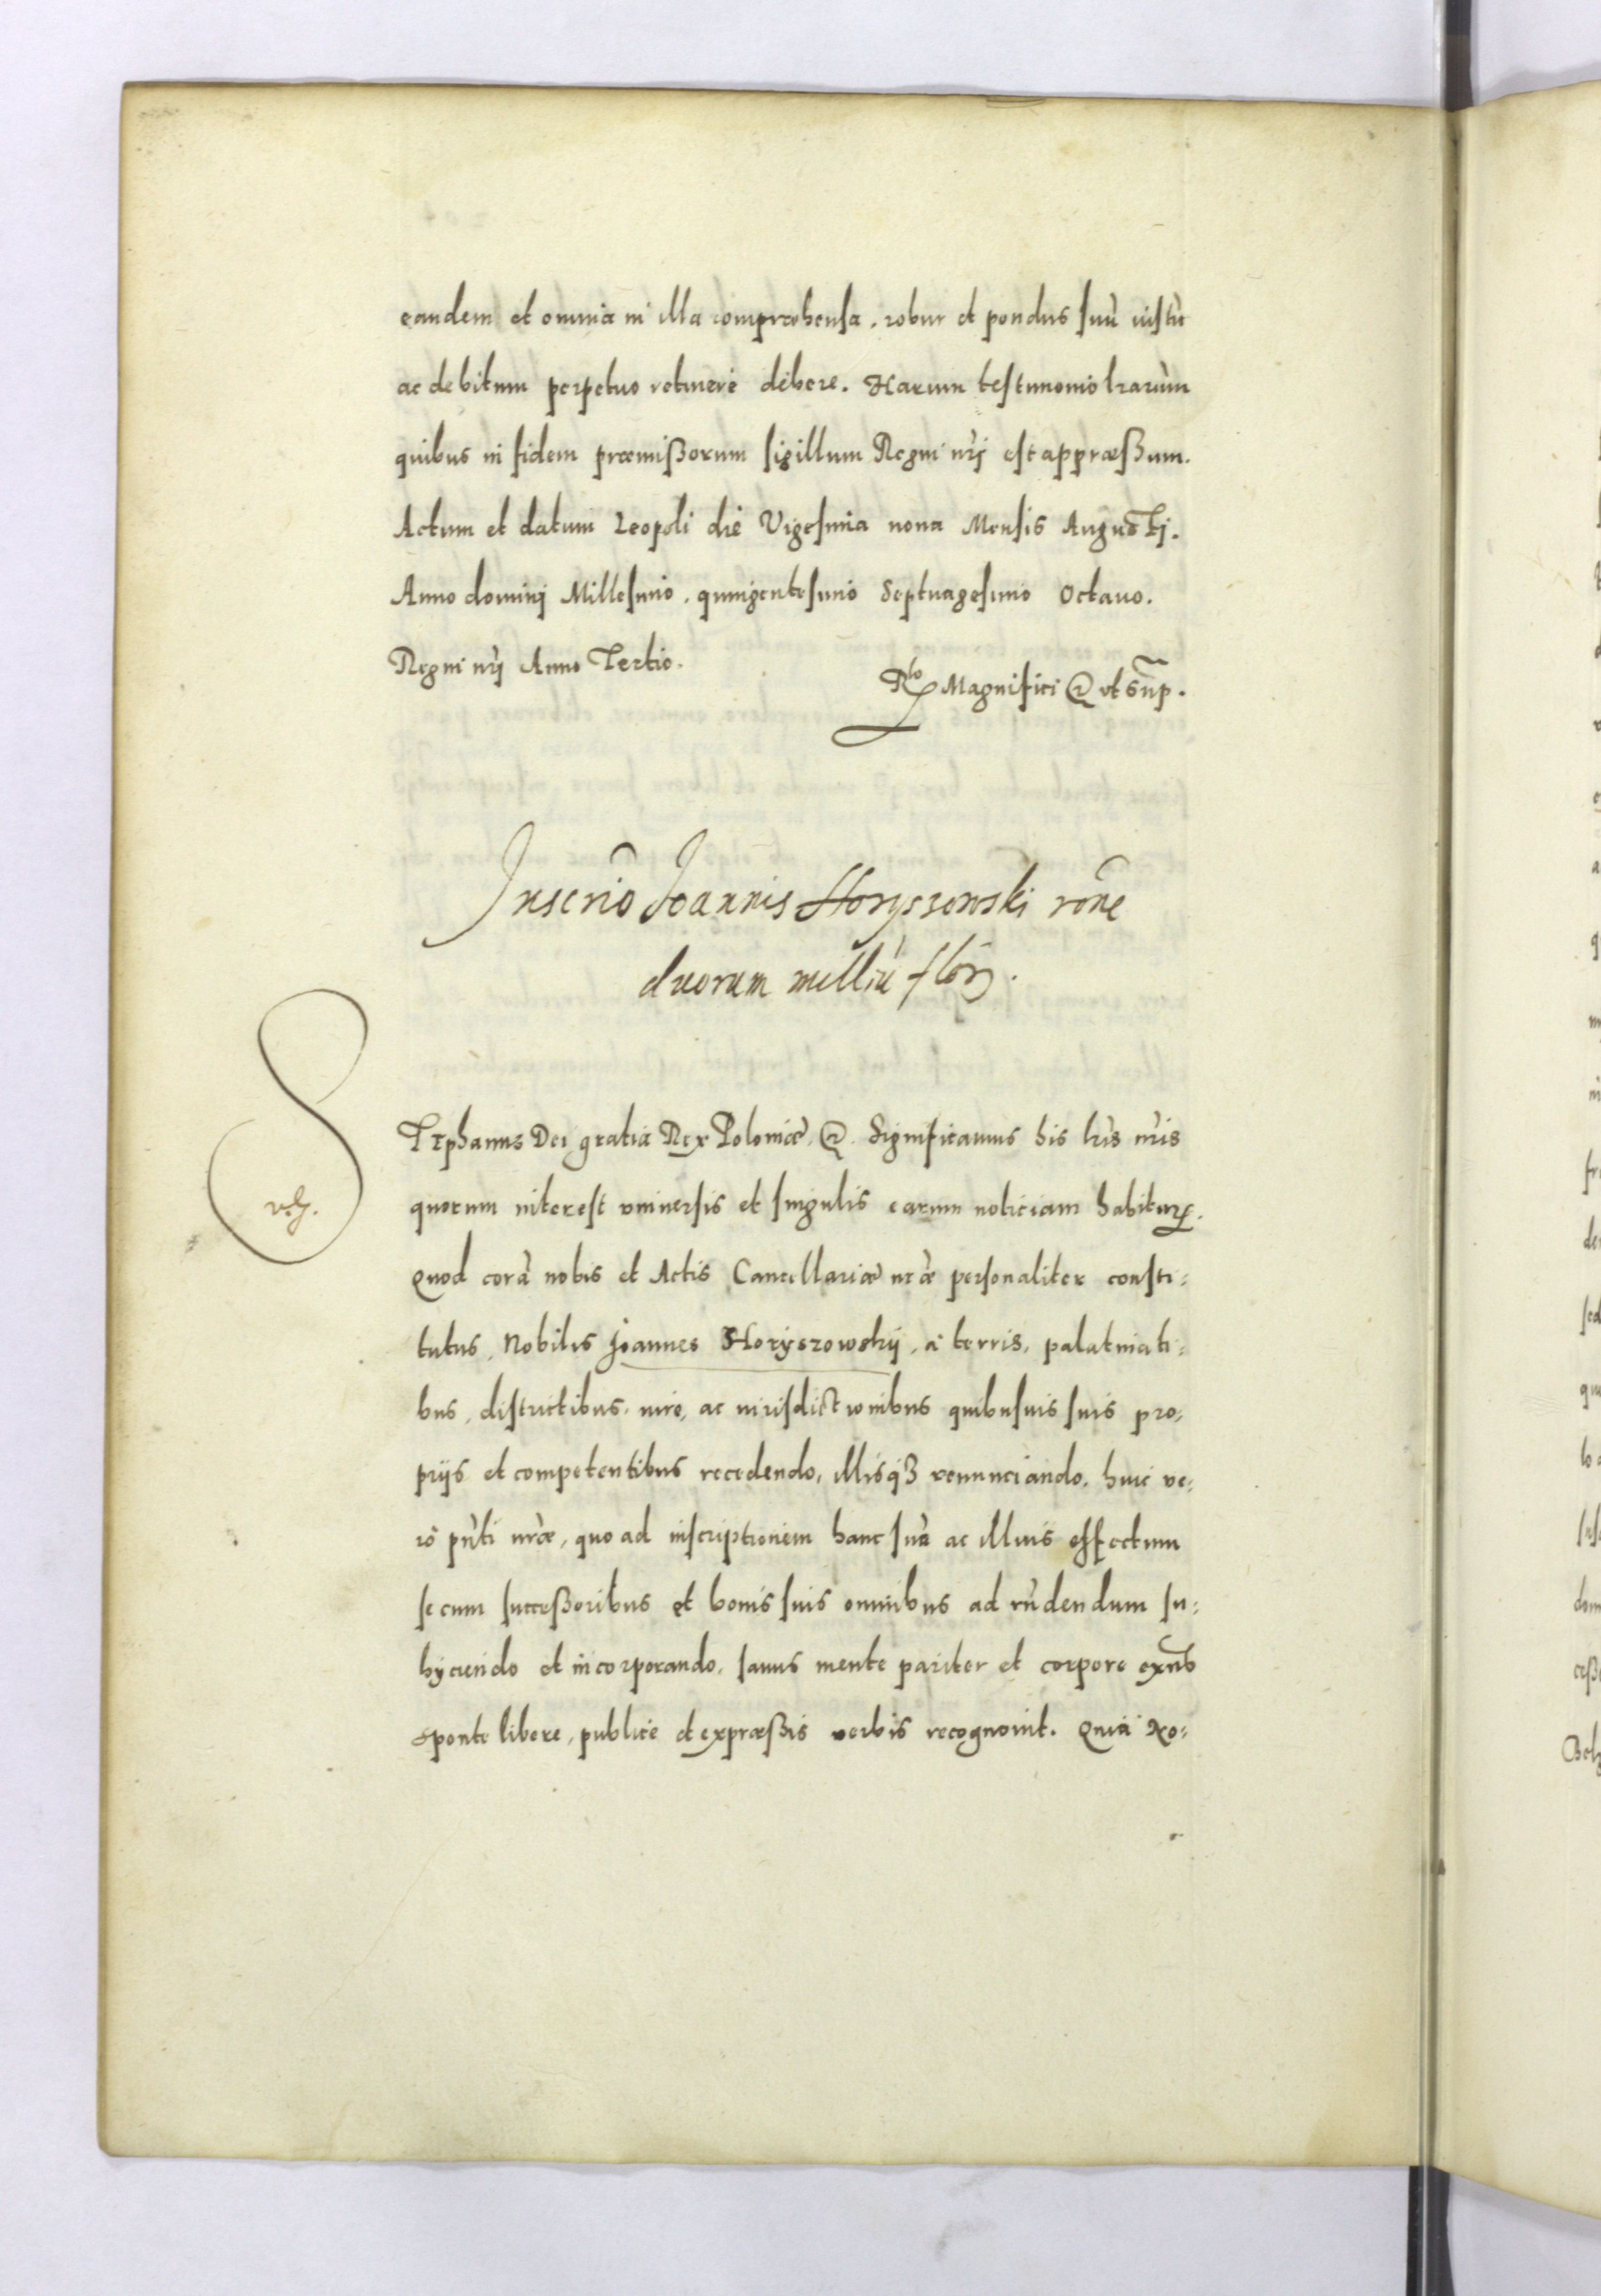 eandem et omnia in illa compræhensa, robur et pondus suũ iustũ
ac debitum perpetuo retinere debere. Harum testimonio lrarum
quibus in fidem præmißorum sigillum Regni nr̃j est appræßum.
Actum et datum Leopoli die Vigesima nona Mensis Augustj.
Anno dominj Millesimo, quingentesimo Septuagesimo Octauo.
Regni nr̃j Anno Tertio.
Rlo Magnifici @ vt sup.
Inscrio Joannis Horyszowski rõne
duorum milliũ flor.
STephanus Dei gratia Rex Poloniæ @ Significamus his lris nr̃is
quorum interest vniuersis et singulis earum noticiam habitur.
Quod corã nobis et Actis Cancellariæ nræ personaliter consti-
tutus, Nobilis Joannes Horyszowskij, a terris, palatinati-
bus, districtibus, iure, ac iurisdictionibus quibusuis suis pro-
prijs et competentibus recedendo, illisqȝ renunciando, huic ve-
ro pñti nræ, quo ad inscriptionem hanc suã ac illius effectum
se cum succeßoribus et bonis suis omnibus ad rñdendum su-
bijciendo et incorporando, sanus mente pariter et corpore exñs
sponte libere, publice et expræßis verbis recognouit. Quia Ro-